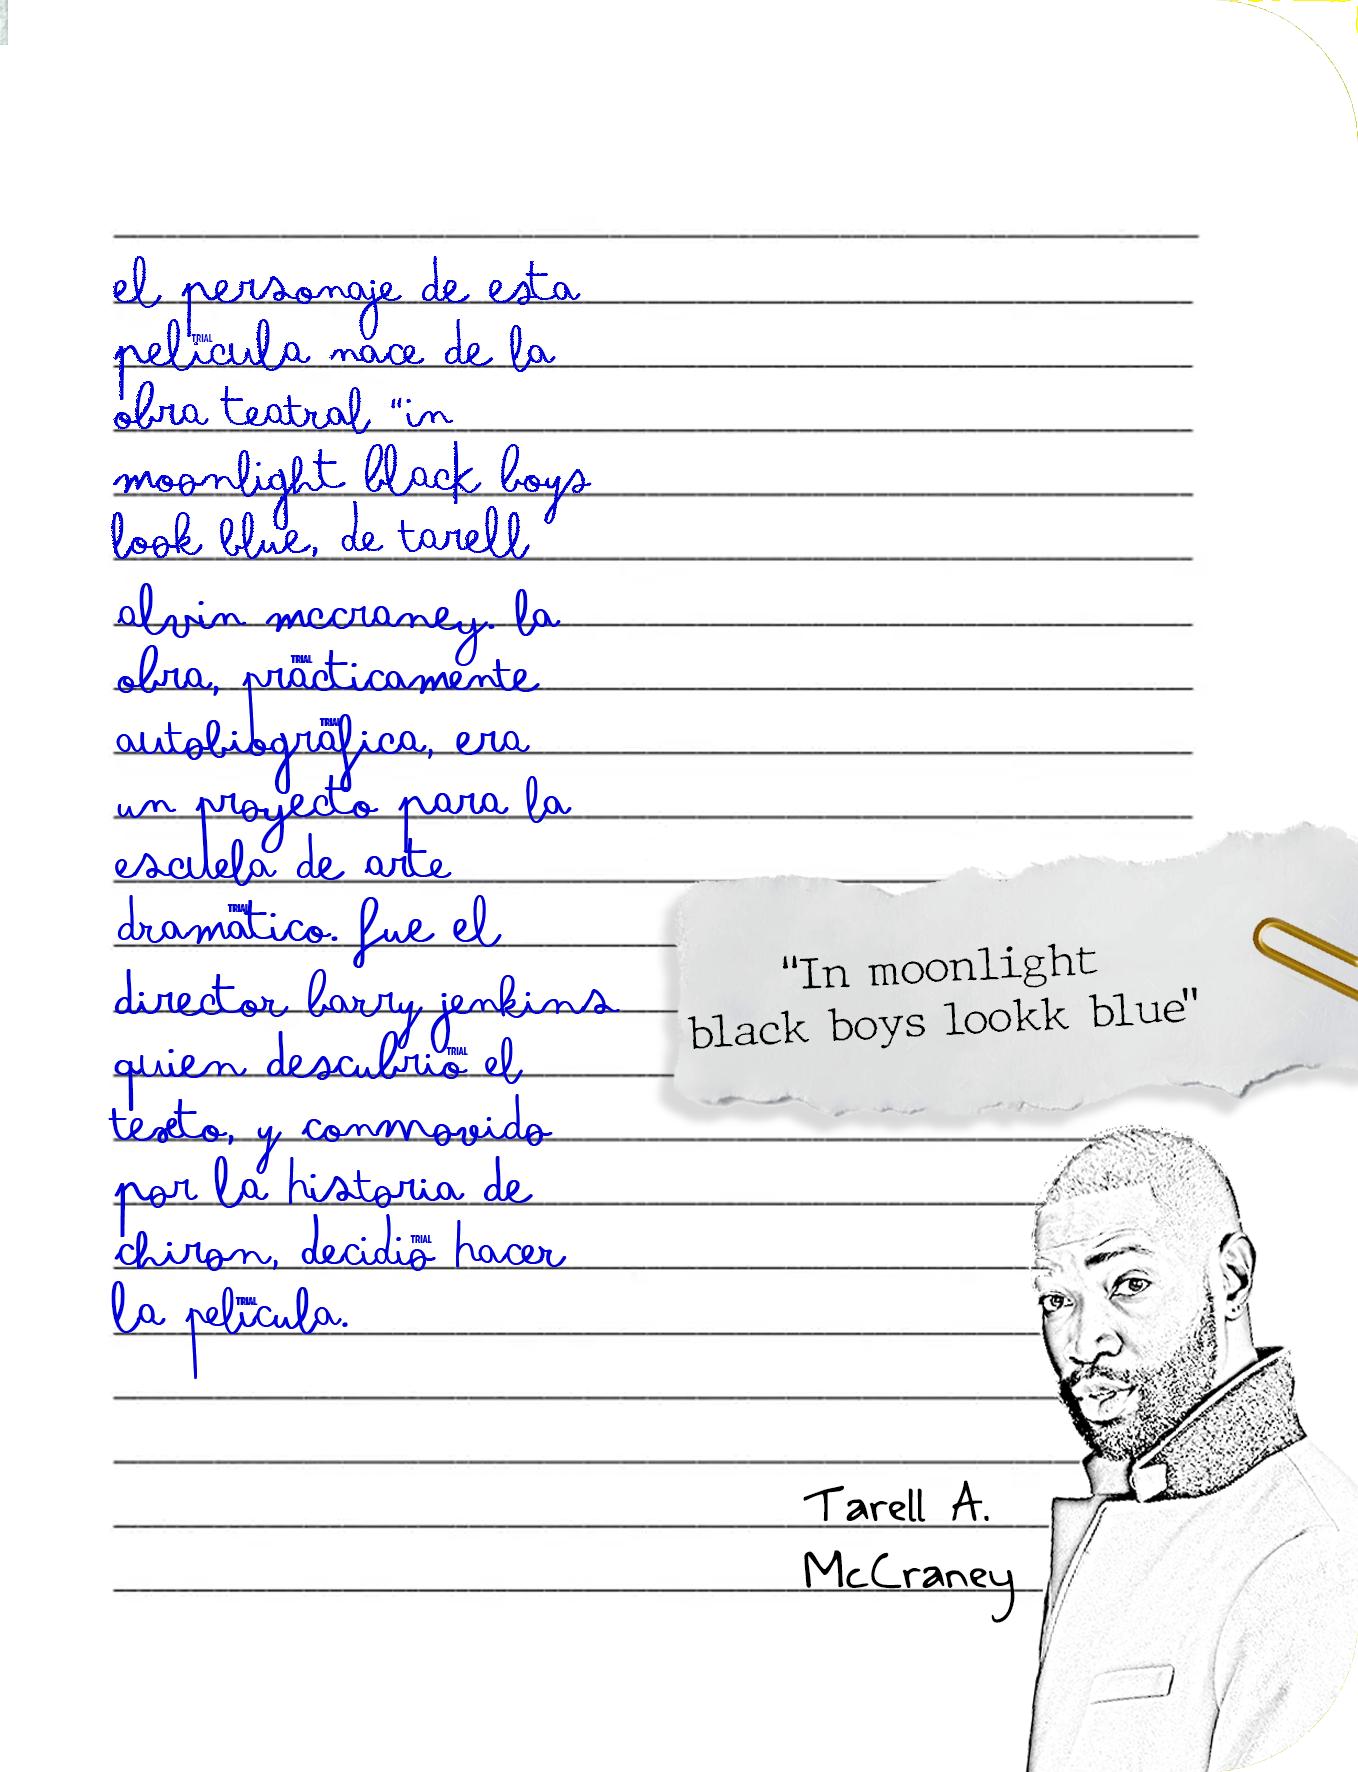 el personaje de esta
película nace de la
obra teatral “in
moonlight black boys
look blue, de tarell
alvin mccraney. la
obra, prácticamente
autobiográfica, era
un proyecto para la
escuela de arte
dramático. fue el
director barry jenkins
quien descubrió el
texto, y conmovido
por la historia de
chiron, decidió hacer
la película.
"In moonlight
black boys lookk blue"
Tarell A.
McCraney